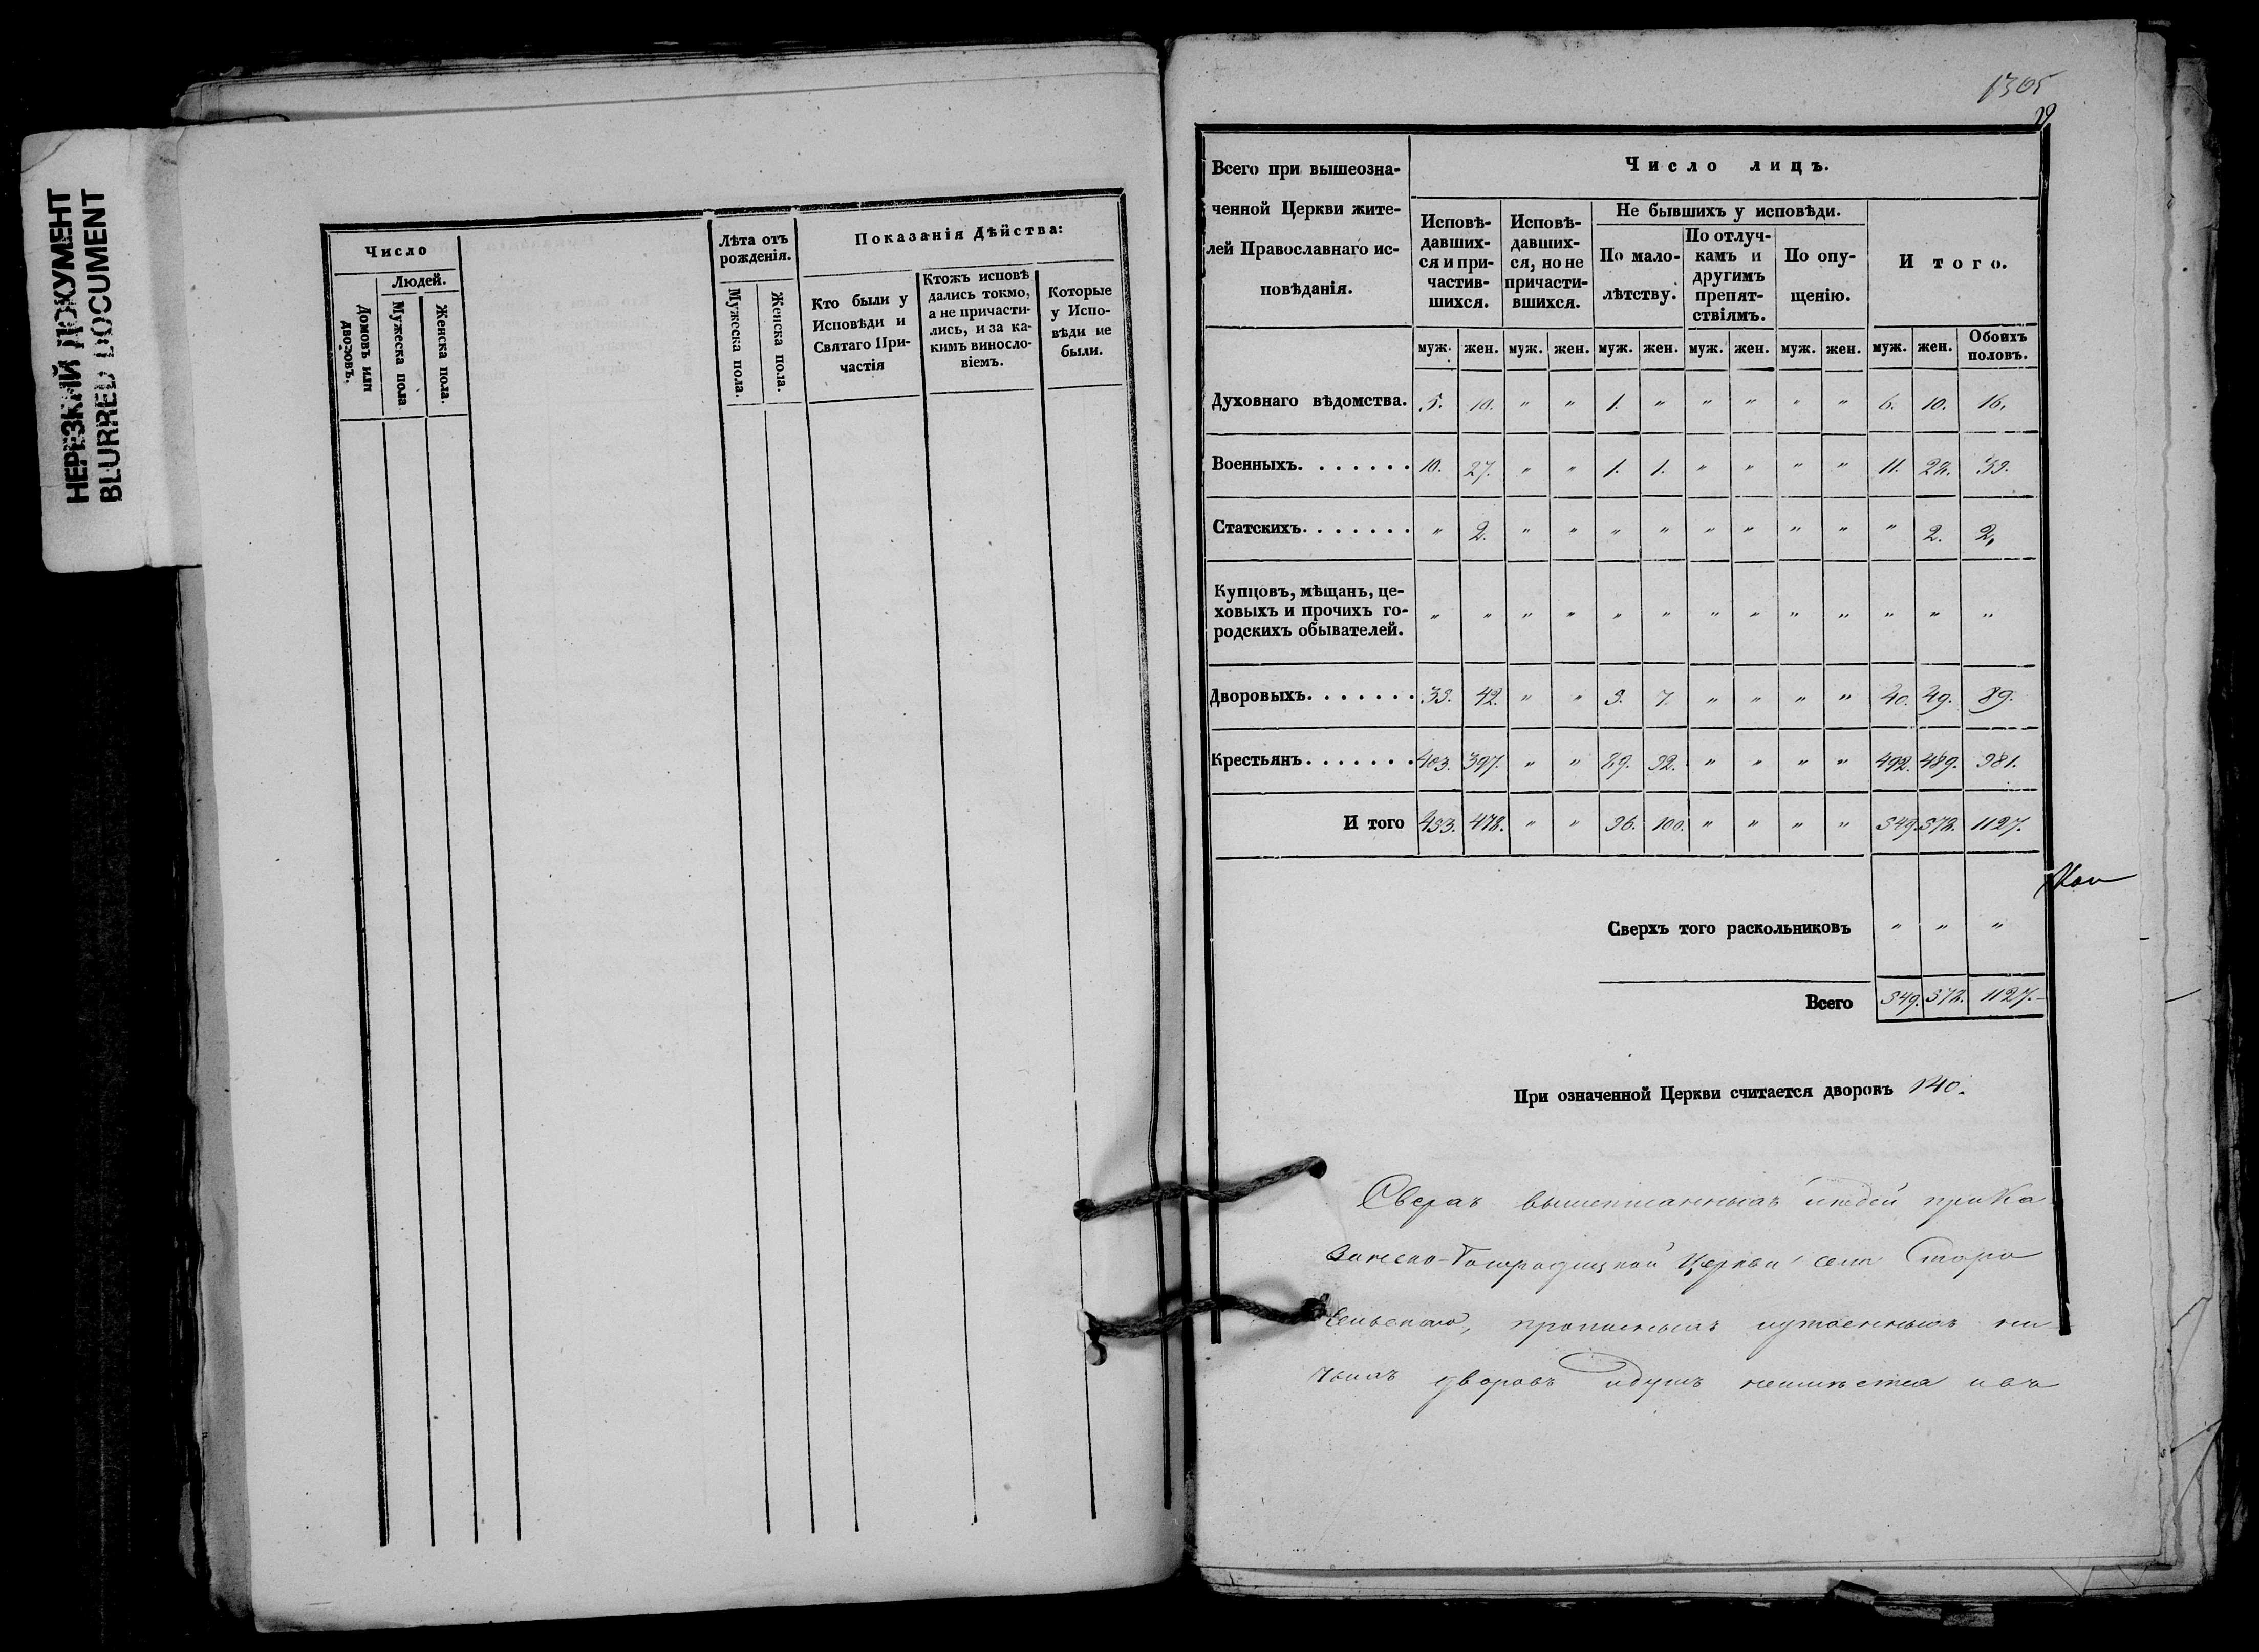 НЕРЕЗКИЙ ДОКУМЕНТ
BLURRED DOCUMENT
Число
Людей.
Домовъ или дворовъ.
Мужеска пола
Женска пола.
Лѣта отъ рожденія.
Мужеска пола.
Женска пола.
Показанія Дѣйства:
Кто были у
Исповѣди и
Святаго При-
частія
Ктожъ исповѣ
дались токмо,
а не причасти-
лись, и за ка-
кимъ винносло-
віемъ.
Которые
у Испо-
вѣди не
были.
1305
29
Всего при вышеозна-
ченной Церкви жите-
лей Православнаго ис-
повѣданія.
Число лицъ.
Исповѣ-
давших-
ся и при-
частив-
шихся.
Исповѣ-
давших-
ся, но не
причасти-
вшихся.
Не бывшихъ у исповѣди.
По мало-
лѣтству.
По отлуч-
камъ и
другимъ
препят-
ствіямъ.
По опу-
щенію.
И того.
муж. жен. муж. жен. муж. жен. муж. жен. муж. жен. муж. жен. Обоихъ половъ.
Духовнаго вѣдомства. 5. 10. " " 1. " " " " " 6. 10. 16.
Военныхъ. . . . . . . 10. 27. " " 1. 1. " " " " 11. 28. 39.
Статскихъ. . . . . . . " 2. " " " " " " " " " 2. 2.
Купцовъ, мѣщанъ, це-
ховыхъ и прочихъ го-
родскихъ обывателей. " " " " " " " " " " " " "
Дворовыхъ. . . . . . . 42. " " 7. " " " " 40. 49. 89.
Крестьянъ. . . . . . . 403. 397. " " 89. 92. " " " " 492. 489. 981.
И того 453. 478. " " 96. 100. " " " " 549. 578. 1127.
Сверхъ того раскольниковъ " " "
Всего 549. 578. 1127.
При означенной Церкви считается дворовъ 140.
Сверхъ вышеписанныхъ людей при Ка
Церкви села Старо
прописныхъ утаенныхъ ни
чьихъ дворовъ идушъ неимѣется ивъ